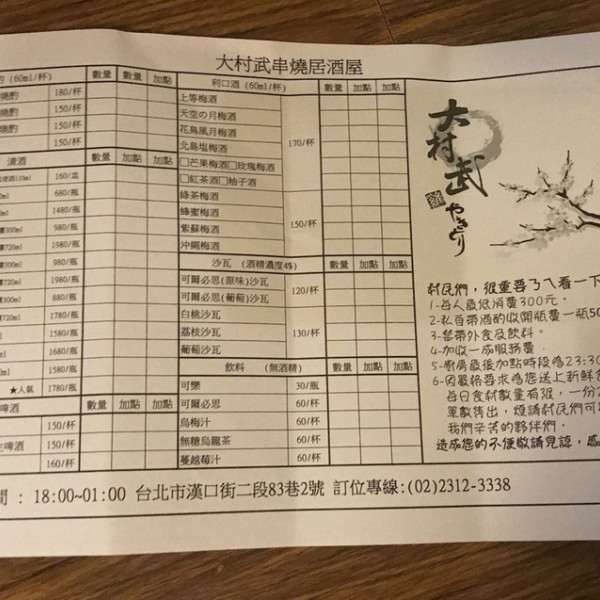 大村武串燒居酒屋
(60ml/杯) 數量 數量 加點
燒酌 180/杯
燒酌 150/杯
燒酌 150/杯
150/杯
清酒 數量 加點 加點
160/盅
680/瓶
1480/瓶
980/瓶
1980/瓶
980/瓶
1980/瓶
880/瓶
3580/瓶
1580/瓶
1680/瓶
1580/瓶
★人氣 1780/瓶
啤酒 數量 加點 加點
150/杯
生啤酒 150/杯
160/杯
利口酒 (60ml/杯) 數量 加點 加點
上等梅酒
天空の月梅酒
花鳥風月梅酒
北島塩梅酒
170/杯
□芒果梅酒□玫瑰梅酒
□紅茶酒□柚子酒
綠茶梅酒
蜂蜜梅酒
紫蘇梅酒
150/杯
沖繩梅酒
沙瓦 (酒精濃度4%) 數量 加點 加點
可爾必思(原味)沙瓦
120/杯
可爾必思(葡萄)沙瓦
白桃沙瓦
荔枝沙瓦
130/杯
葡萄沙瓦
飲料 (無酒精) 數量 加點 加點
可樂 30/瓶
可爾必思 60/杯
烏梅汁 60/杯
無糖烏龍茶 60/杯
蔓越莓汁 60/杯
大村武
やきとり
村民們，很重要ㄋㄟ看一下
1-每人最低消費300元。
2-私自帶酒酌收開瓶費一瓶50
3-禁帶外食及飲料。
4-加收一成服務費
5-廚房最後加點時段為23:30
6-因嚴格要求為您送上新鮮食
每日食材數量有限，一份
售出，煩請村民們可
我們辛苦的夥伴們。
造成您的不便敬請見諒，感
間 : 18:00~01:00 台北市漢口街二段83巷2號 訂位專線:(02)2312-3338